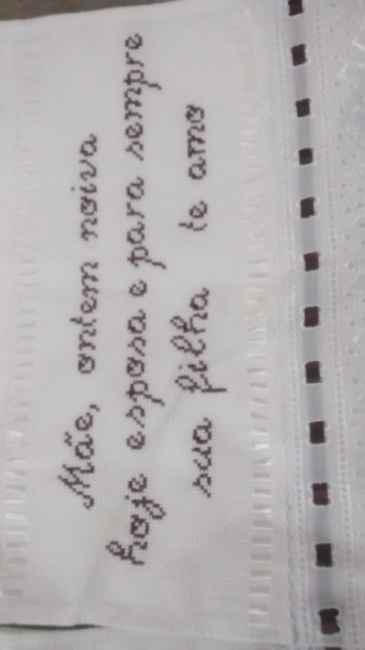 Mãe, ontem noiva
hoje esposa e para sempre
sua filha te amo